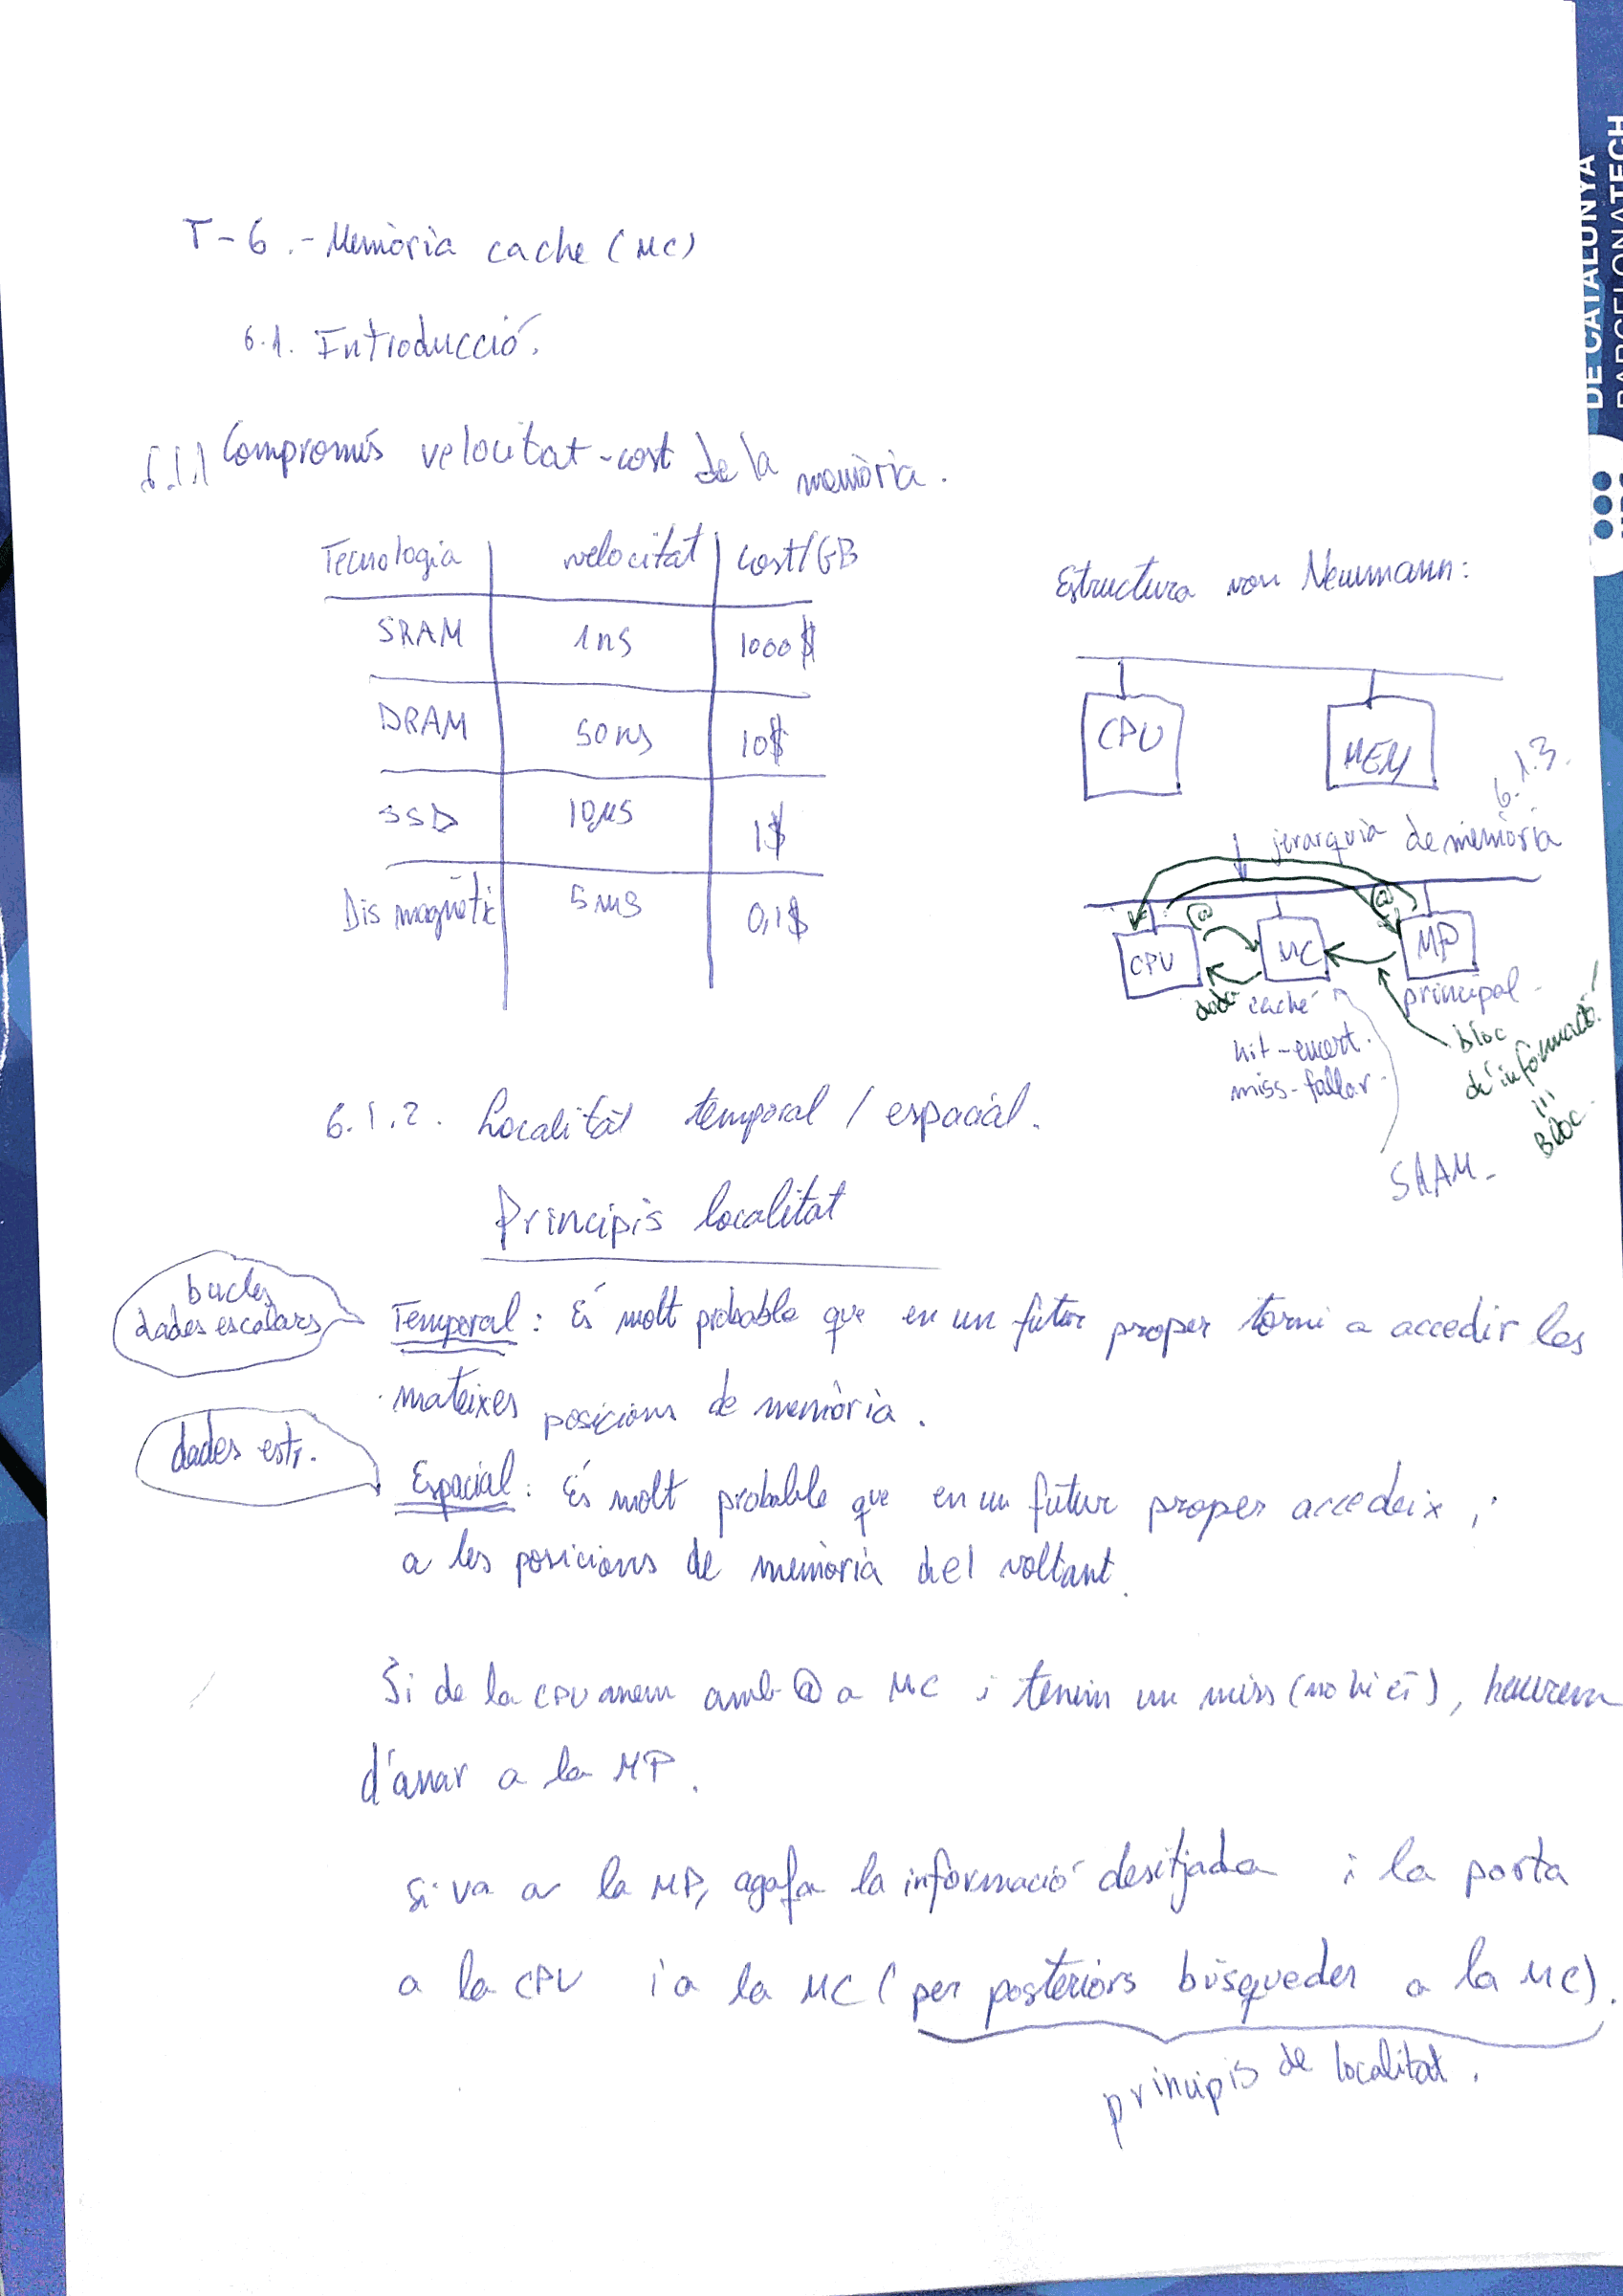 T-6.- Memòria cache (MC)
6.1. Introducció.
6.1.1 Compromís velocitat-cost de la memòria.
Tecnologia velocitat cost/GB
SRAM 1ns 1000$
DRAM 50ns 10$
SSD 10µs 1$
Dis magnètic 5ms 0,1$
Estructura von Neumann:
CPU MEM
6.1.3.
jerarquia de memòria
@ @
CPU MC MP
dada caché principal
hit-encert.
miss-fallar.
bloc
d'informació
Bloc.
SRAM
6.1.2. Localitat temporal / espacial.
Principis localitat
bucles
dades escalars
Temporal: És molt probable que en un futur proper torni a accedir les
mateixes posicions de memòria.
dades estr.
Espacial: És molt probable que en un futur proper accedeix,
a les posicions de memòria del voltant.
Si de la CPU anem amb @ a MC i tenim un miss (no hi és), haurem
d'anar a la MP.
Si va a la MP, agafa la informació desitjada i la porta
a la CPU i a la MC (per posteriors búsquedes a la MC).
principis de localitat.
DE CATALUNYA
BARCELONATECH